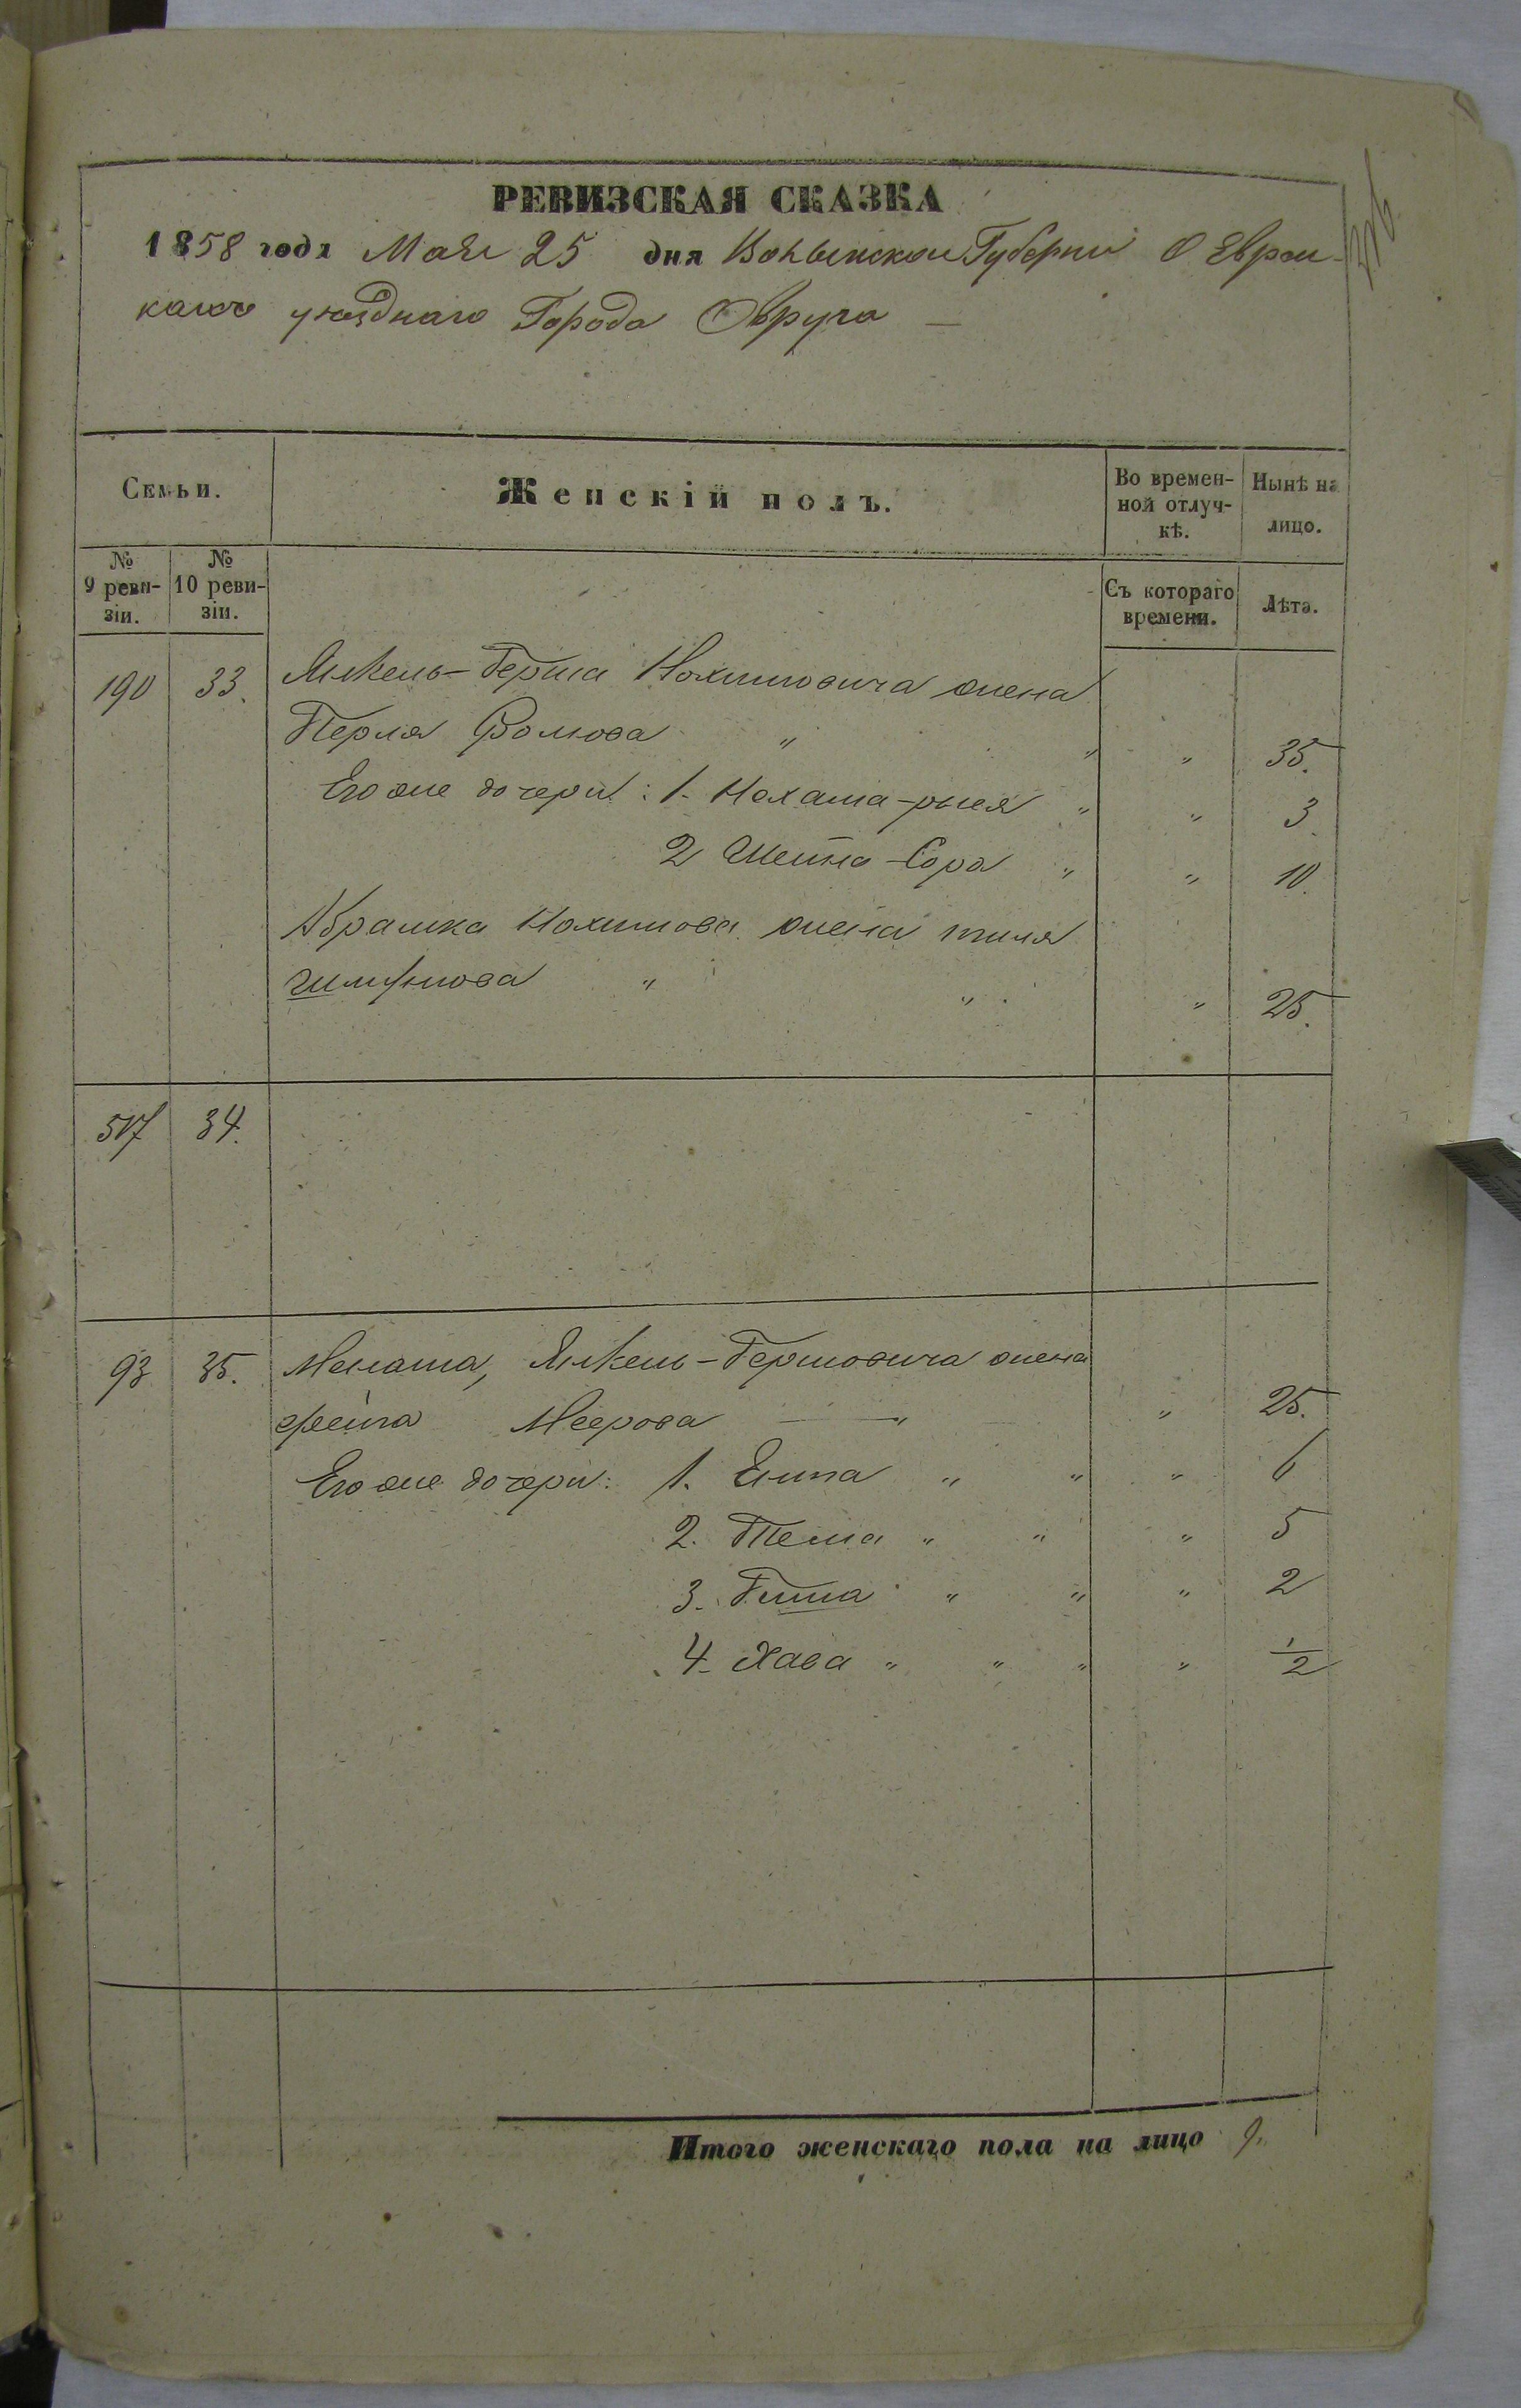 РЕВИЗСКАЯ СКАЗКА
1858 года Мая 25 дня Волынской Губернии О Евреи-
яхъ уезднаго Города Овруча —
Семьи. Женскій полъ. Во времен- Нынѣ на
ной отлуч- лицо.
кѣ.
№ №
9 реви- 10 реви- Съ котораго Лѣта.
зіи. зіи. времени.
190 33. Янкель-Герша Нохимовича жена
Перля Волкова " " " 35.
Его же дочери: 1. Нахама-рыся " " 3.
2 Шейна-Сора " " 10.
Абрамка Нохимова жена тиля
" " " 25.
517 34.
93 35. Менаша, Янкель-Гершовича жена
фейга Меерова — " " 25.
Его же дочери: 1. Ента " " " 6
2. Тема " " " 5
3. " " " 2
4. Хава " " " " 1/2
Итого женскаго пола на лицо 9.